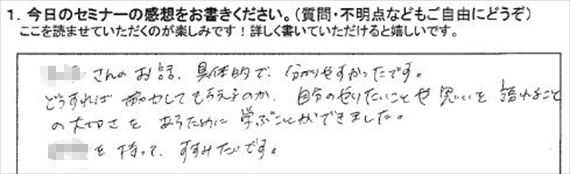 1. 今日のセミナーの感想をお書きください。(質問・不明点などもご自由にどうぞ)
ここを読ませていただくのが楽しみです！詳しく書いていただけると嬉しいです。
さんのお話、具体的で、分かりやすかったです。
どうすれば 協力してもらえるのか、自分のやりたいことや思いを 語れること
の大切さを あらためて 学ぶことができました。
を持って、すすみたいです。